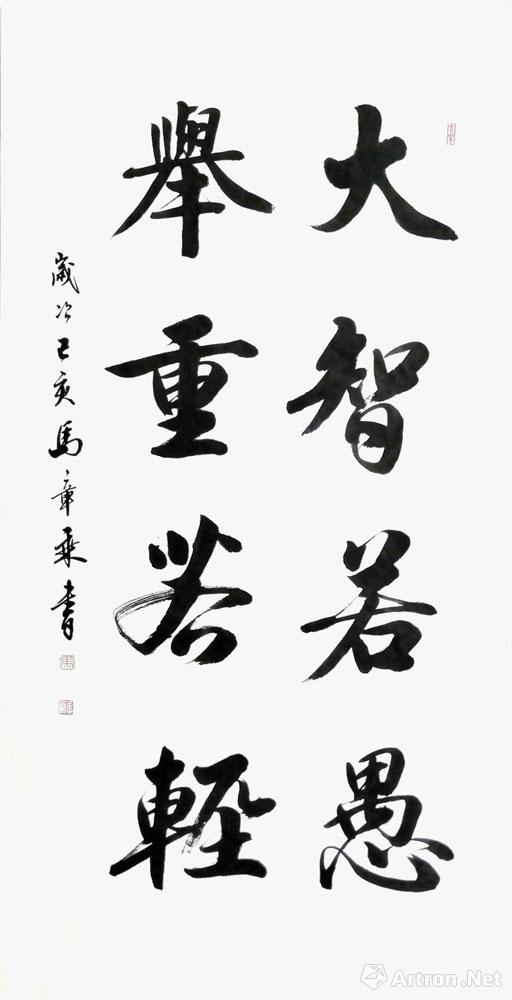 大智若愚
舉重若輕
歲次己亥馬章乘書
Artron.Net